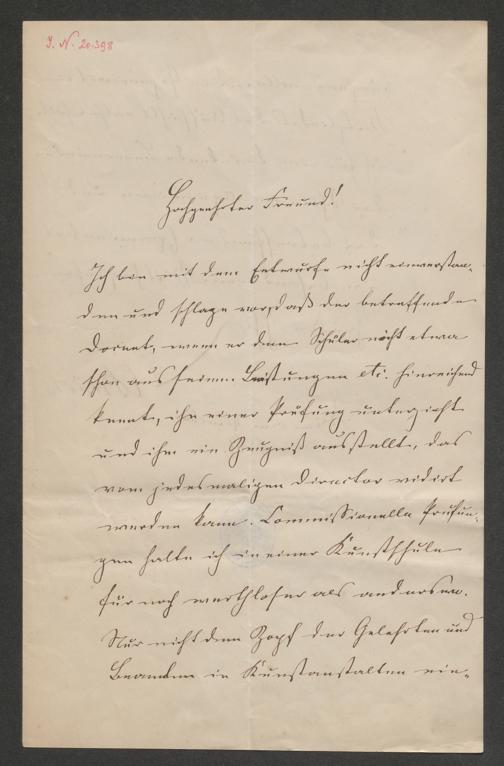 J. N. 20.398
Hochgeehrter Freund!
Ich bin mit dem Entwurfe nicht einverstan-
den und schlage vor, daß der betreffende
Docent, wenn er den Schüler nicht etwa
schon aus seinen Leistungen etc. hinreichend
kennt, ihn einer Prüfung unterzieht
und ihm ein Zeugniß ausstellt, das
vom jedesmaligen Director vidirt
werden kann. Commissionelle Prüfun-
gen halte ich in einer Kunstschule
für noch werthloser als anderswo.
Nur nicht den Zopf der Gelehrten und
Beamten in Kunstanstalten ein-